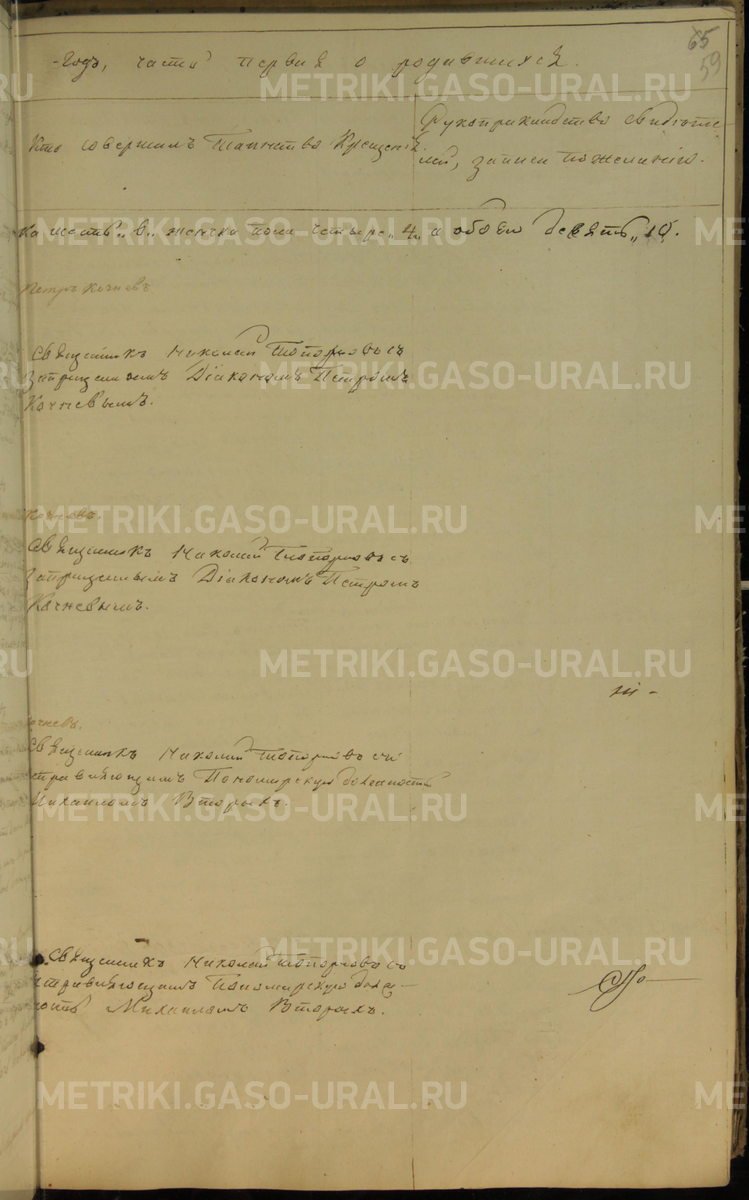 65
59
-Годъ, часть первая о родившихся.
Кто совершалъ Таинство Крещенія
Рукоприкладство свидѣте-
лей, записи по желанію.
женска пола четыре „4„ и обоего десять „10.
Петръ Кочневъ
Священникъ Николай Топорковъ съ
Запрещеннымъ Діакономъ Петромъ
Кочневымъ.
Кочневъ.
Священникъ Николай Топорковъ съ
Запрещеннымъ Діакономъ Петромъ
Кочневымъ.
Кочневъ.
Священникъ Николай Топорковъ съ
исправляющимъ Пономарскую должность
Михаиломъ Вторыхъ.
Священникъ Николай Топорковъ съ
исправляющимъ Пономарскую долж-
ность Михаиломъ Вторыхъ.
METRIKI.GASO-URAL.RU